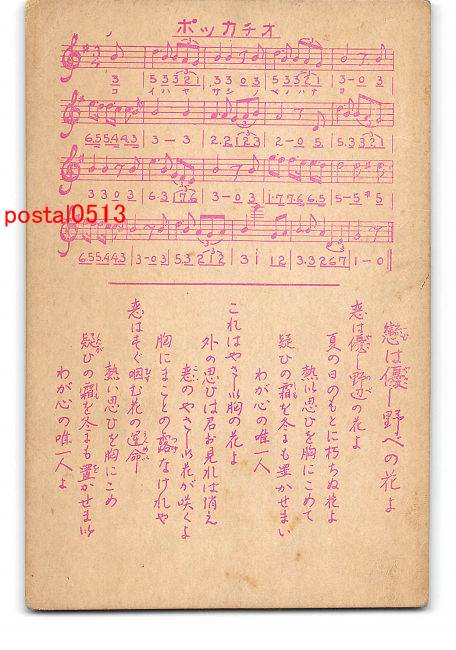 ポッカチオ
3 5 3 3 2 1 3 3 0 3 5 3 3 2 1 3 - 0 3
コ イ ハ ヤ サ シ ノ ベ ノ ハ ナ ヨ
6.5 5.4 4.3 3 - 3 2.2 1 2 3 2 - 0 5 5.3 3 2 1
3 3 0 3 6.3 1 7 6 3 - 0 3 1.7 7.6 6.5 5 - 5 #5
postal0513
6.5 5.4 4.3 3 - 0 3 5.3 2 1 2 3 i 1 2 3.3 2 6 7 1 - 0
戀は優し野べの花よ
恋は優し野辺の花よ
夏の日のもとに朽ちぬ花よ
熱い思ひを胸にこめて
疑ひの霜を冬にも置かせまい
わが心の唯一人よ
これはやさしい胸の花よ
外の思ひは君お見れは消え
恋のやさしい花が咲くよ
胸にまことの露なけれや
恋はすぐ凋む花の運命
熱い思ひを胸にこめ
疑ひの霜を冬にも置かせまい
わが心の唯一人よ